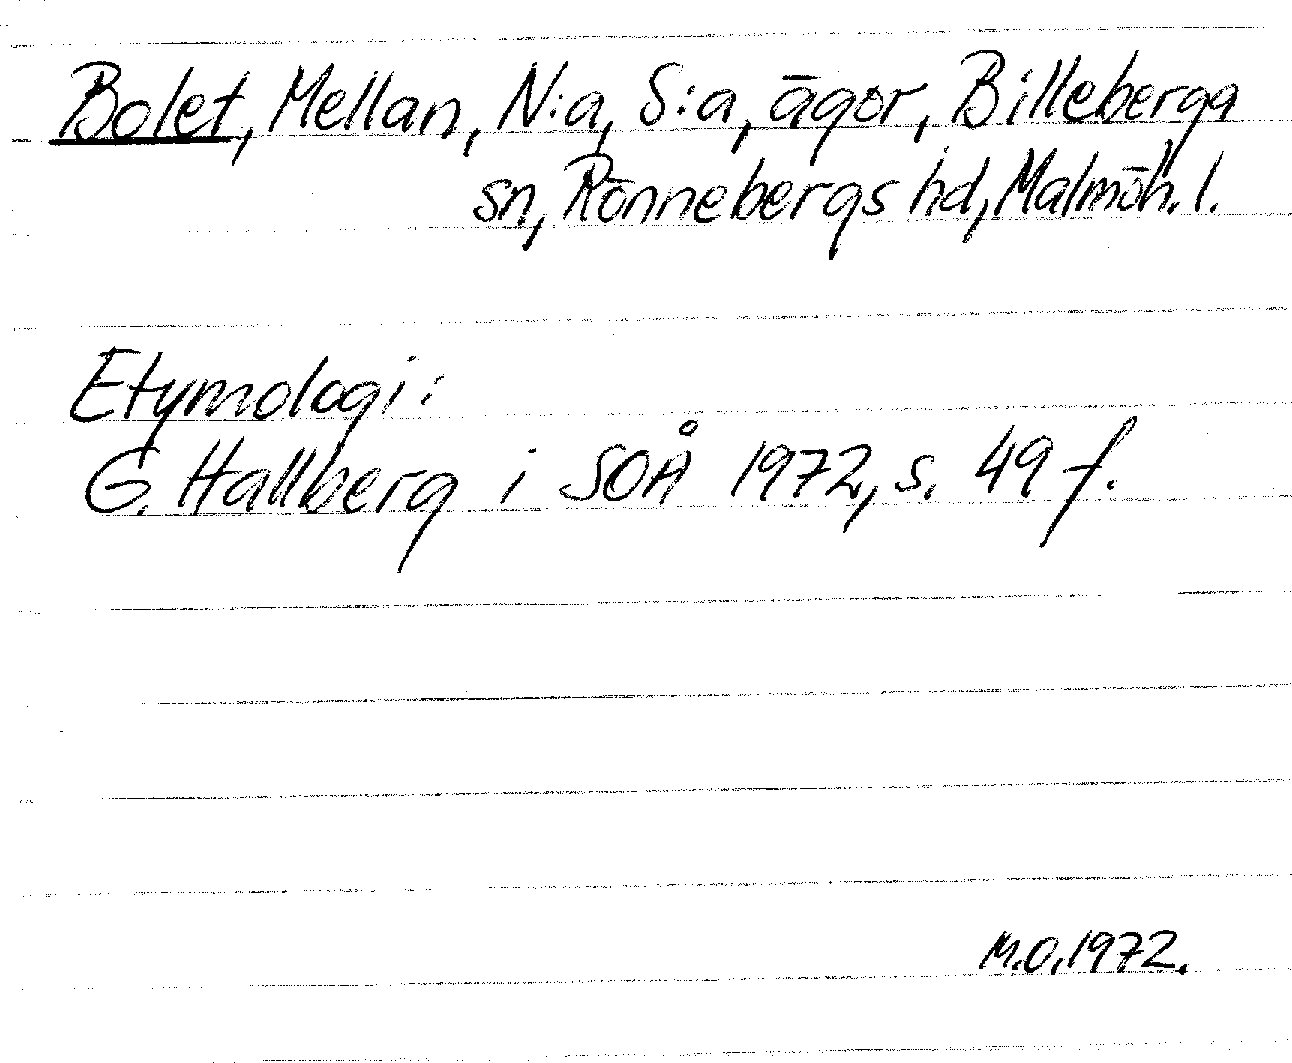 Bolet, Mellan, N:a, S:a, ägor, Billeberga
sn, Rönnebergs hd, Malmöh. l.
Etymologi:
G. Hallberg i SOÅ 1972, s. 49 f.
M.O. 1972.